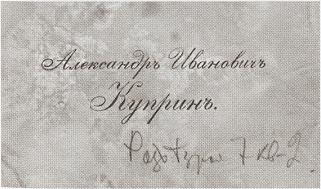 Александръ Ивановичъ
Купринъ.
7 кв-2